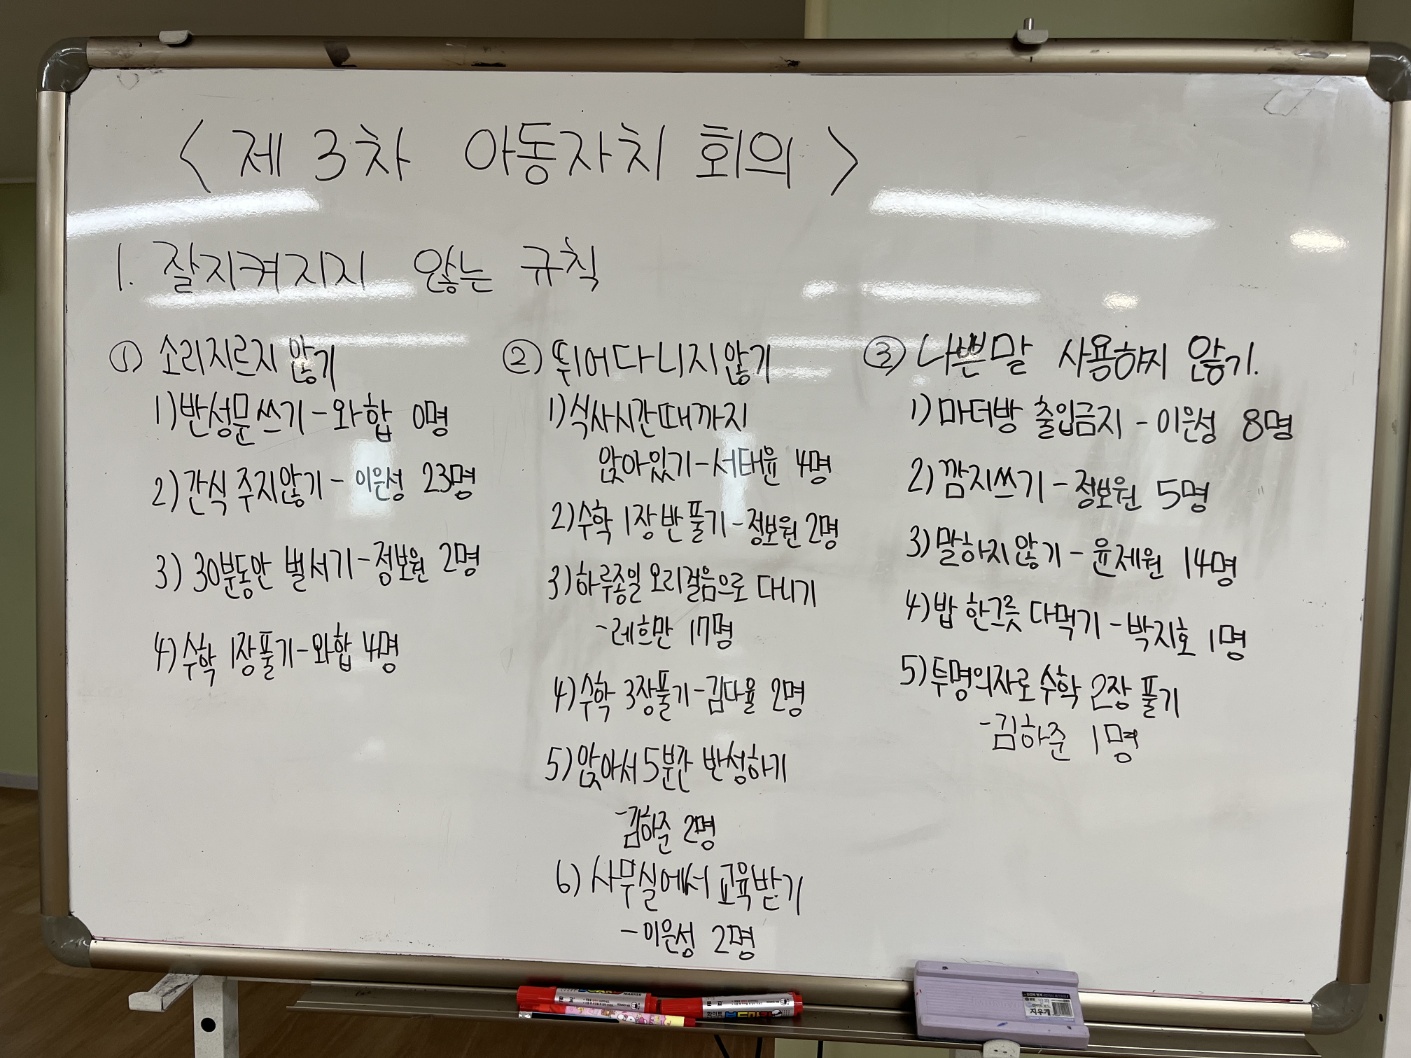 < 제 3차 아동자치 회의 >
1. 잘지켜지지 않는 규칙
① 소리지르지 않기
1) 반성문쓰기 - 와합 0명
2) 간식 주지않기 - 이은성 23명
3) 30분동안 벌서기 - 정보원 2명
4) 수학 1장풀기 - 와합 4명
② 뛰어다니지않기
1) 식사시간때까지
앉아있기 - 서태윤 4명
2) 수학 1장 반 풀기 - 정보원 2명
3) 하루종일 오리걸음으로 다니기
- 레흐만 17명
4) 수학 3장풀기 - 김다율 2명
5) 앉아서 5분간 반성하기
- 김하준 2명
6) 사무실에서 교육받기
- 이은성 2명
③ 나쁜말 사용하지 않기.
1) 마더방 출입금지 - 이은성 8명
2) 깜지쓰기 - 정보원 5명
3) 말하지않기 - 윤제원 14명
4) 밥 한그릇 다먹기 - 박지호 1명
5) 투명의자로 수학 2장 풀기
- 김하준 1명
지우개